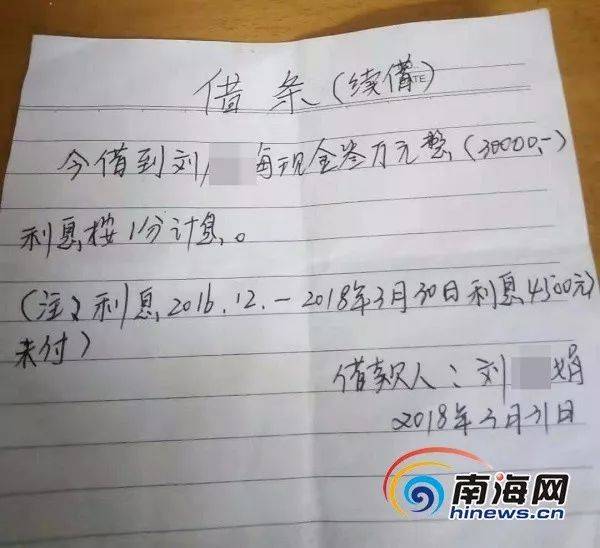 借条(续借)
今借到刘 每现金叁万元整(30000,-)
利息按1分计息。
(注: 利息2016.12.-2018年3月30日利息4500元
未付)
借款人:刘 娟
2018年3月31日
南海网
hinews.cn